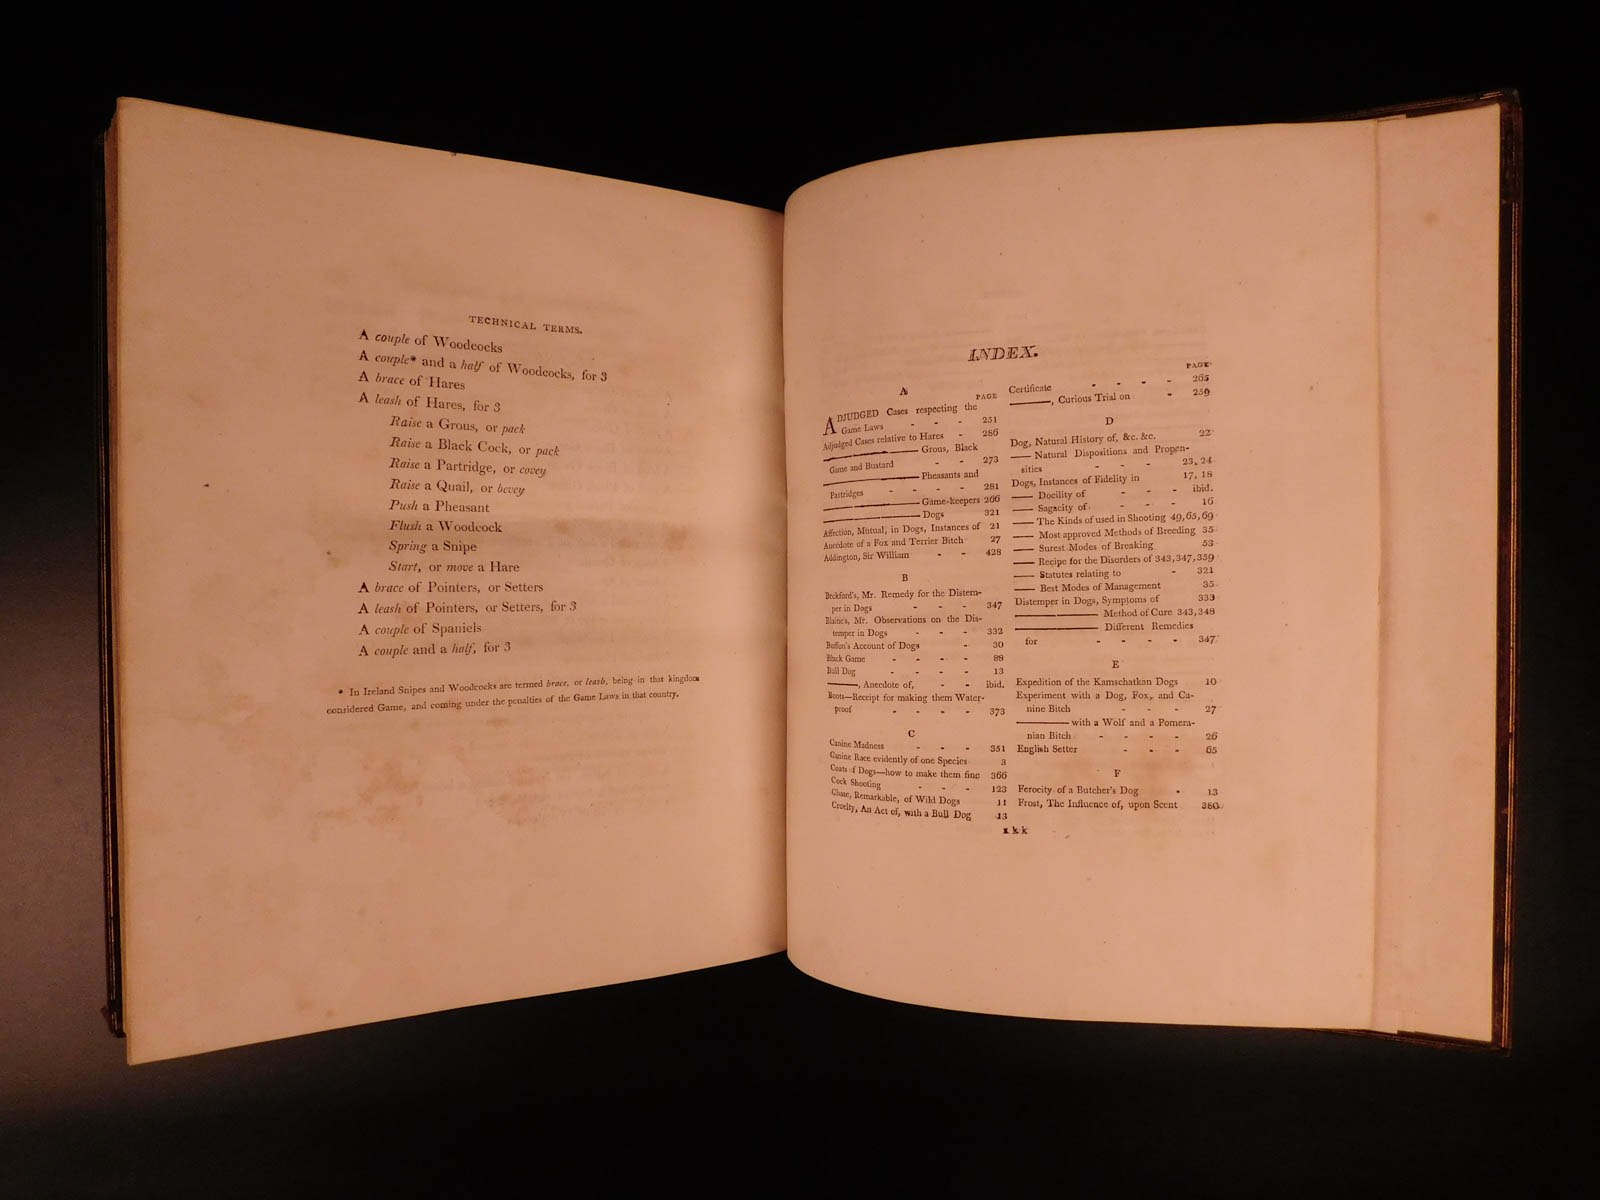 TECHNICAL TERMS.
A couple of Woodcocks
A couple* and a half of Woodcocks, for 3
A brace of Hares
A leash of Hares, for 3
Raise a Grous, or pack
Raise a Black Cock, or pack
Raise a Partridge, or covey
Raise a Quail, or bevey
Push a Pheasant
Flush a Woodcock
Spring a Snipe
Start, or move a Hare
A brace of Pointers, or Setters
A leash of Pointers, or Setters, for 3
A couple of Spaniels
A couple and a half, for 3
* In Ireland Snipes and Woodcocks are termed brace, or leash, being in that kingdom
considered Game, and coming under the penalties of the Game Laws in that country.
INDEX.
A
PAGE
ADJUDGED Cases respecting the
Game Laws - - - 251
Adjudged Cases relative to Hares - 286
——— Grous, Black
Game and Bustard - - 273
——— Pheasants and
Partridges - - - - 281
——— Game-keepers 266
——— Dogs 321
Affection, Mutual, in Dogs, Instances of 21
Anecdote of a Fox and Terrier Bitch 27
Addington, Sir William - - 428
B
Beckford's, Mr. Remedy for the Distem-
per in Dogs - - - 347
Blaine's, Mr. Observations on the Dis-
temper in Dogs - - - 332
Buffon's Account of Dogs - 30
Black Game - - - - 88
Bull Dog - - - - 13
———, Anecdote of, - - ibid.
Boots—Receipt for making them Water-
proof - - - - 373
C
Canine Madness - - - 351
Canine Race evidently of one Species 3
Coats of Dogs—how to make them fine 366
Cock Shooting - - - 123
Chase, Remarkable, of Wild Dogs 11
Cruelty, An Act of, with a Bull Dog 13
PAGE
Certificate - - - - 265
———, Curious Trial on - 259
D
Dog, Natural History of, &c. &c. 22
—— Natural Dispositions and Propen-
sities - - - 23, 24
Dogs, Instances of Fidelity in 17, 18
—— Docility of - - - ibid.
—— Sagacity of - - - 16
—— The Kinds of used in Shooting 49, 65, 69
—— Most approved Methods of Breeding 35
—— Surest Modes of Breaking 53
—— Recipe for the Disorders of 343, 347, 359
—— Statutes relating to - 321
—— Best Modes of Management 35
Distemper in Dogs, Symptoms of 333
——— Method of Cure 343, 348
——— Different Remedies
for - - - - 347
E
Expedition of the Kamschatkan Dogs 10
Experiment with a Dog, Fox, and Ca-
nine Bitch - - - 27
——— with a Wolf and a Pomera-
nian Bitch - - - - 26
English Setter - - - 65
F
Ferocity of a Butcher's Dog - 13
Frost, The Influence of, upon Scent 380